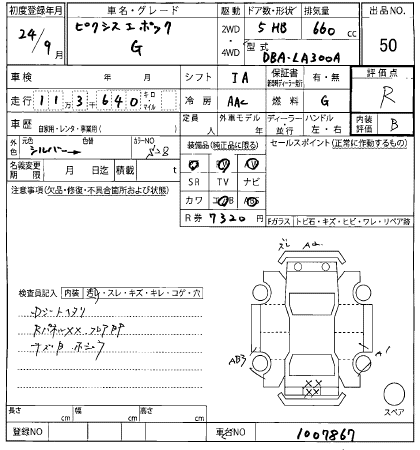 初度登録年月 車名・グレード 駆動 ドア数・形状 排気量 出品NO.
24/9月 ピクシスエポック G 2WD・4WD 5 HB 660 cc 50
型式 DBA-LA300A
車検 年 月 シフト IA 保証書 有・無 評価点
走行 11万3千640 キロ・マイル 冷房 AAC 燃料 G R
車歴 自家用・レンタ・事業用( ) 定員 人 外車モデル 年 ディーラー・並行 ハンドル 左・右 内装評価 B
外色 元色 シルバー 色替 カラーNO 装備品(純正品に限る) セールスポイント(正常に作動するもの)
名義変更期限 月 日迄 積載 t
SR TV ナビ
注意事項(欠品・修復・不具合箇所および状態) カワ
R券 7320
Fガラス トビ石・キズ・ヒビ・ワレ・リペア跡
ズレ
検査員記入 内装 ・スレ・キズ・キレ・コゲ・穴
RパネルXX フロアPP
AB3 A1
XX
XX
スペア
長さ cm 幅 cm 高さ cm
登録NO 車台NO 1007867